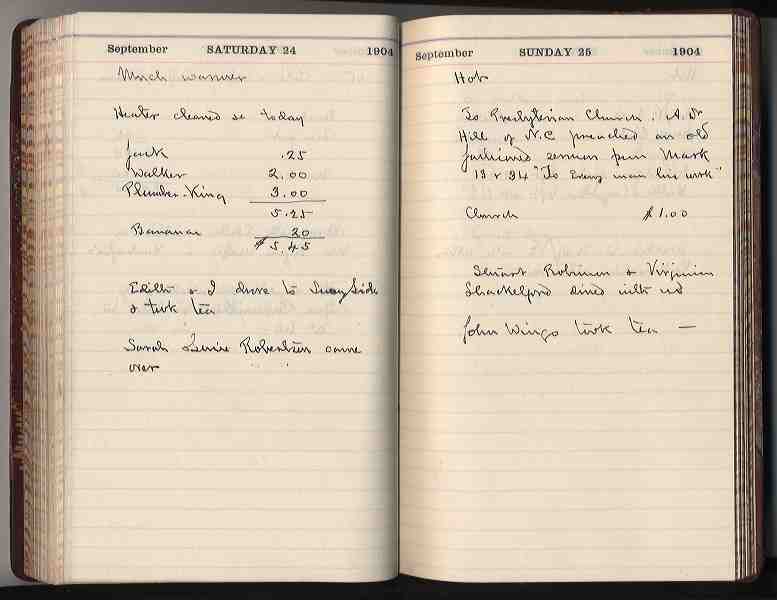 September SATURDAY 24 1904
Much warmer
Heater cleaned &c today
Jack .25
Walker 2.00
Plumber-King 3.00
5.25
Bananas 20
$5.45
Edith & I drove to Sunny Side
& took tea
Sarah Robertson came
over
September SUNDAY 25 1904
Hot
To Presbyterian Church. A Dr
Hill of N.C preached an old
fashioned sermon from Mark
13 v 34 "To Every man his work"
Church $1.00
Stuart Robinson & Virginia
Shackelford dined with us
John Wingo took tea —